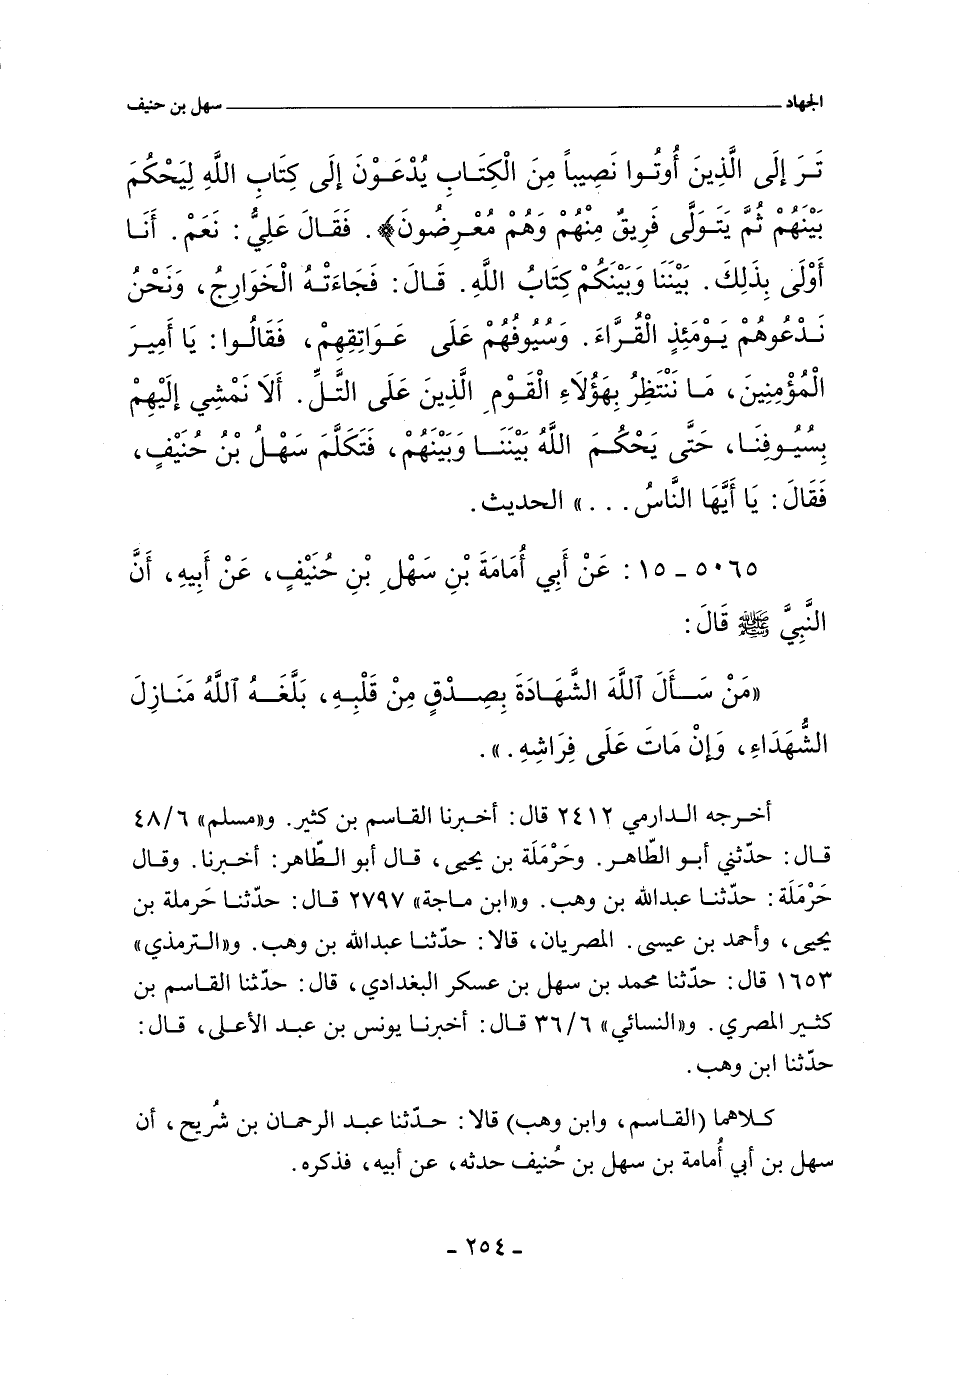 الجهاد ـــــــــــــــــــــــــــــــــــــــــــــــــ سهل بن حنيف
تَرَ إِلَى الَّذِينَ أُوتُوا نَصِيباً مِنَ الْكِتَابِ يُدْعَوْنَ إِلَى كِتَابِ اللَّهِ لِيَحْكُمَ
بَيْنَهُمْ ثُمَّ يَتَوَلَّى فَرِيقٌ مِنْهُمْ وَهُمْ مُعْرِضُونَ﴾. فَقَالَ عَلِيٌّ: نَعَمْ. أَنَا
أَوْلَى بِذَلِكَ. بَيْنَنَا وَبَيْنَكُمْ كِتَابُ اللَّهِ. قَالَ: فَجَاءَتْهُ الْخَوَارِجُ، وَنَحْنُ
نَدْعُوهُمْ يَوْمَئِذٍ الْقُرَّاءَ. وَسُيُوفُهُمْ عَلَى عَوَاتِقِهِمْ، فَقَالُوا: يَا أَمِيرَ
الْمُؤْمِنِينَ، مَا نَنْتَظِرُ بِهَؤُلَاءِ الْقَوْمِ الَّذِينَ عَلَى التَّلِّ. أَلَا نَمْشِي إِلَيْهِمْ
بِسُيُوفِنَا، حَتَّى يَحْكُمَ اللَّهُ بَيْنَنَا وَبَيْنَهُمْ، فَتَكَلَّمَ سَهْلُ بْنُ حُنَيْفٍ،
فَقَالَ: يَا أَيُّهَا النَّاسُ. . .» الحديث.
٥٠٦٥ - ١٥: عَنْ أَبِي أُمَامَةَ بْنِ سَهْلِ بْنِ حُنَيْفٍ، عَنْ أَبِيهِ، أَنَّ
النَّبِيَّ ﷺ قَالَ:
«مَنْ سَأَلَ اللَّهَ الشَّهَادَةَ بِصِدْقٍ مِنْ قَلْبِهِ، بَلَّغَهُ اللَّهُ مَنَازِلَ
الشُّهَدَاءِ، وَإِنْ مَاتَ عَلَى فِرَاشِهِ.».
أخرجه الدارمي ٢٤١٢ قال: أخبرنا القاسم بن كثير. و«مسلم» ٤٨/٦
قال: حدّثني أبو الطّاهر. وحَرْمَلة بن يحيى، قال أبو الطّاهر: أخبرنا. وقال
حَرْمَلَة: حدّثنا عبدالله بن وهب. و«ابن ماجة» ٢٧٩٧ قال: حدّثنا حَرملة بن
يحيى، وأحمد بن عيسى. المصريان، قالا: حدّثنا عبدالله بن وهب. و«الترمذي»
١٦٥٣ قال: حدّثنا محمد بن سهل بن عسكر البغدادي، قال: حدّثنا القاسم بن
كثير المصري. و«النسائي» ٣٦/٦ قال: أخبرنا يونس بن عبد الأعلى، قال:
حدّثنا ابن وهب.
كلاهما (القاسم، وابن وهب) قالا: حدّثنا عبد الرحمان بن شُريح، أن
سهل بن أبي أُمامة بن سهل بن حُنيف حدثه، عن أبيه، فذكره.
- ٢٥٤ -